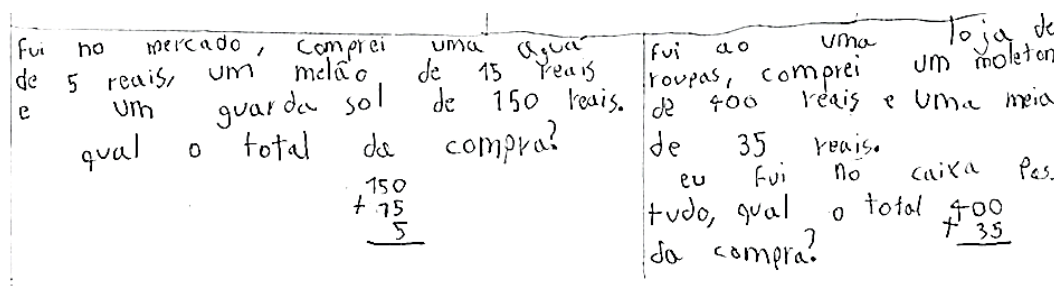 Fui no mercado, comprei uma agua
de 5 reais, um melão de 15 reais
e um guarda sol de 150 reais.
qual o total da compra?
150
+ 15
5
Fui ao uma loja de
roupas, comprei um moleton
de 400 reais e uma meia
de 35 reais.
eu fui no caixa Pas.
tudo, qual o total
da compra?
400
+ 35